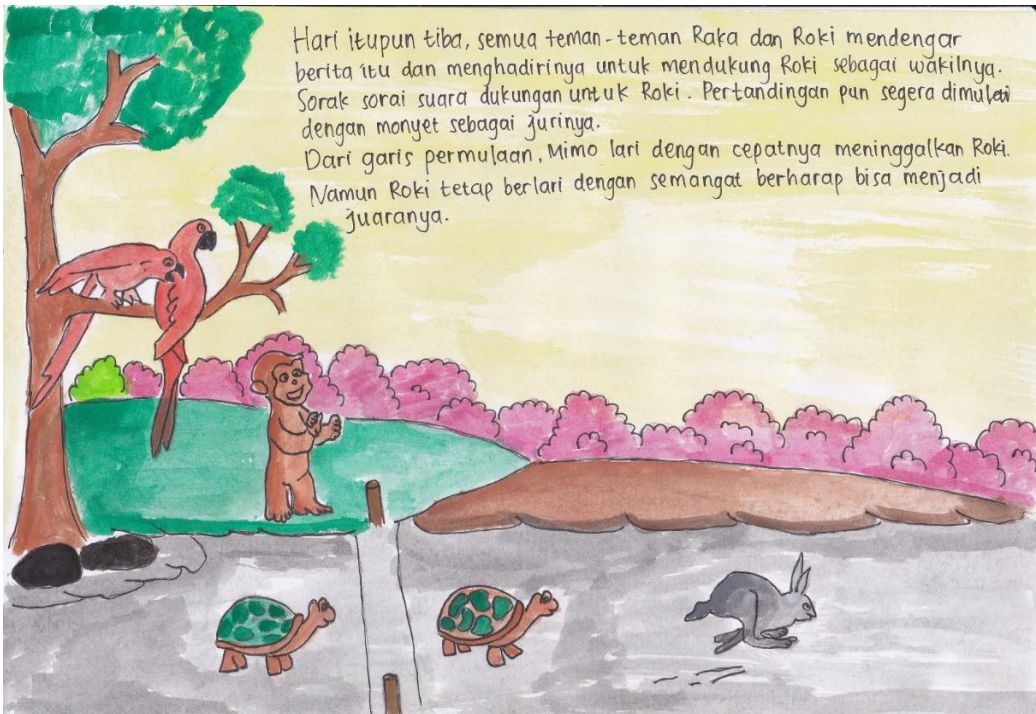 Hari itupun tiba, semua teman-teman Raka dan Roki mendengar
berita itu dan menghadirinya untuk mendukung Roki sebagai wakilnya.
Sorak sorai suara dukungan untuk Roki. Pertandingan pun segera dimulai
dengan monyet sebagai jurinya.
Dari garis permulaan, Mimo lari dengan cepatnya meninggalkan Roki.
Namun Roki tetap berlari dengan semangat berharap bisa menjadi
juaranya.